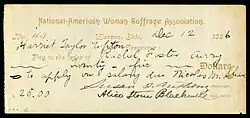 National-American Woman Suffrage Association.
Warren, Ohio, Dec 12 1896
Harriet Taylor Upton
Treasurer
Pay to the order of Rachel Foster Avery
twenty-five Dollars
to apply on salary due Nicolas M. Shaw
$25.00 Susan B. Anthony
Alice Stone Blackwell